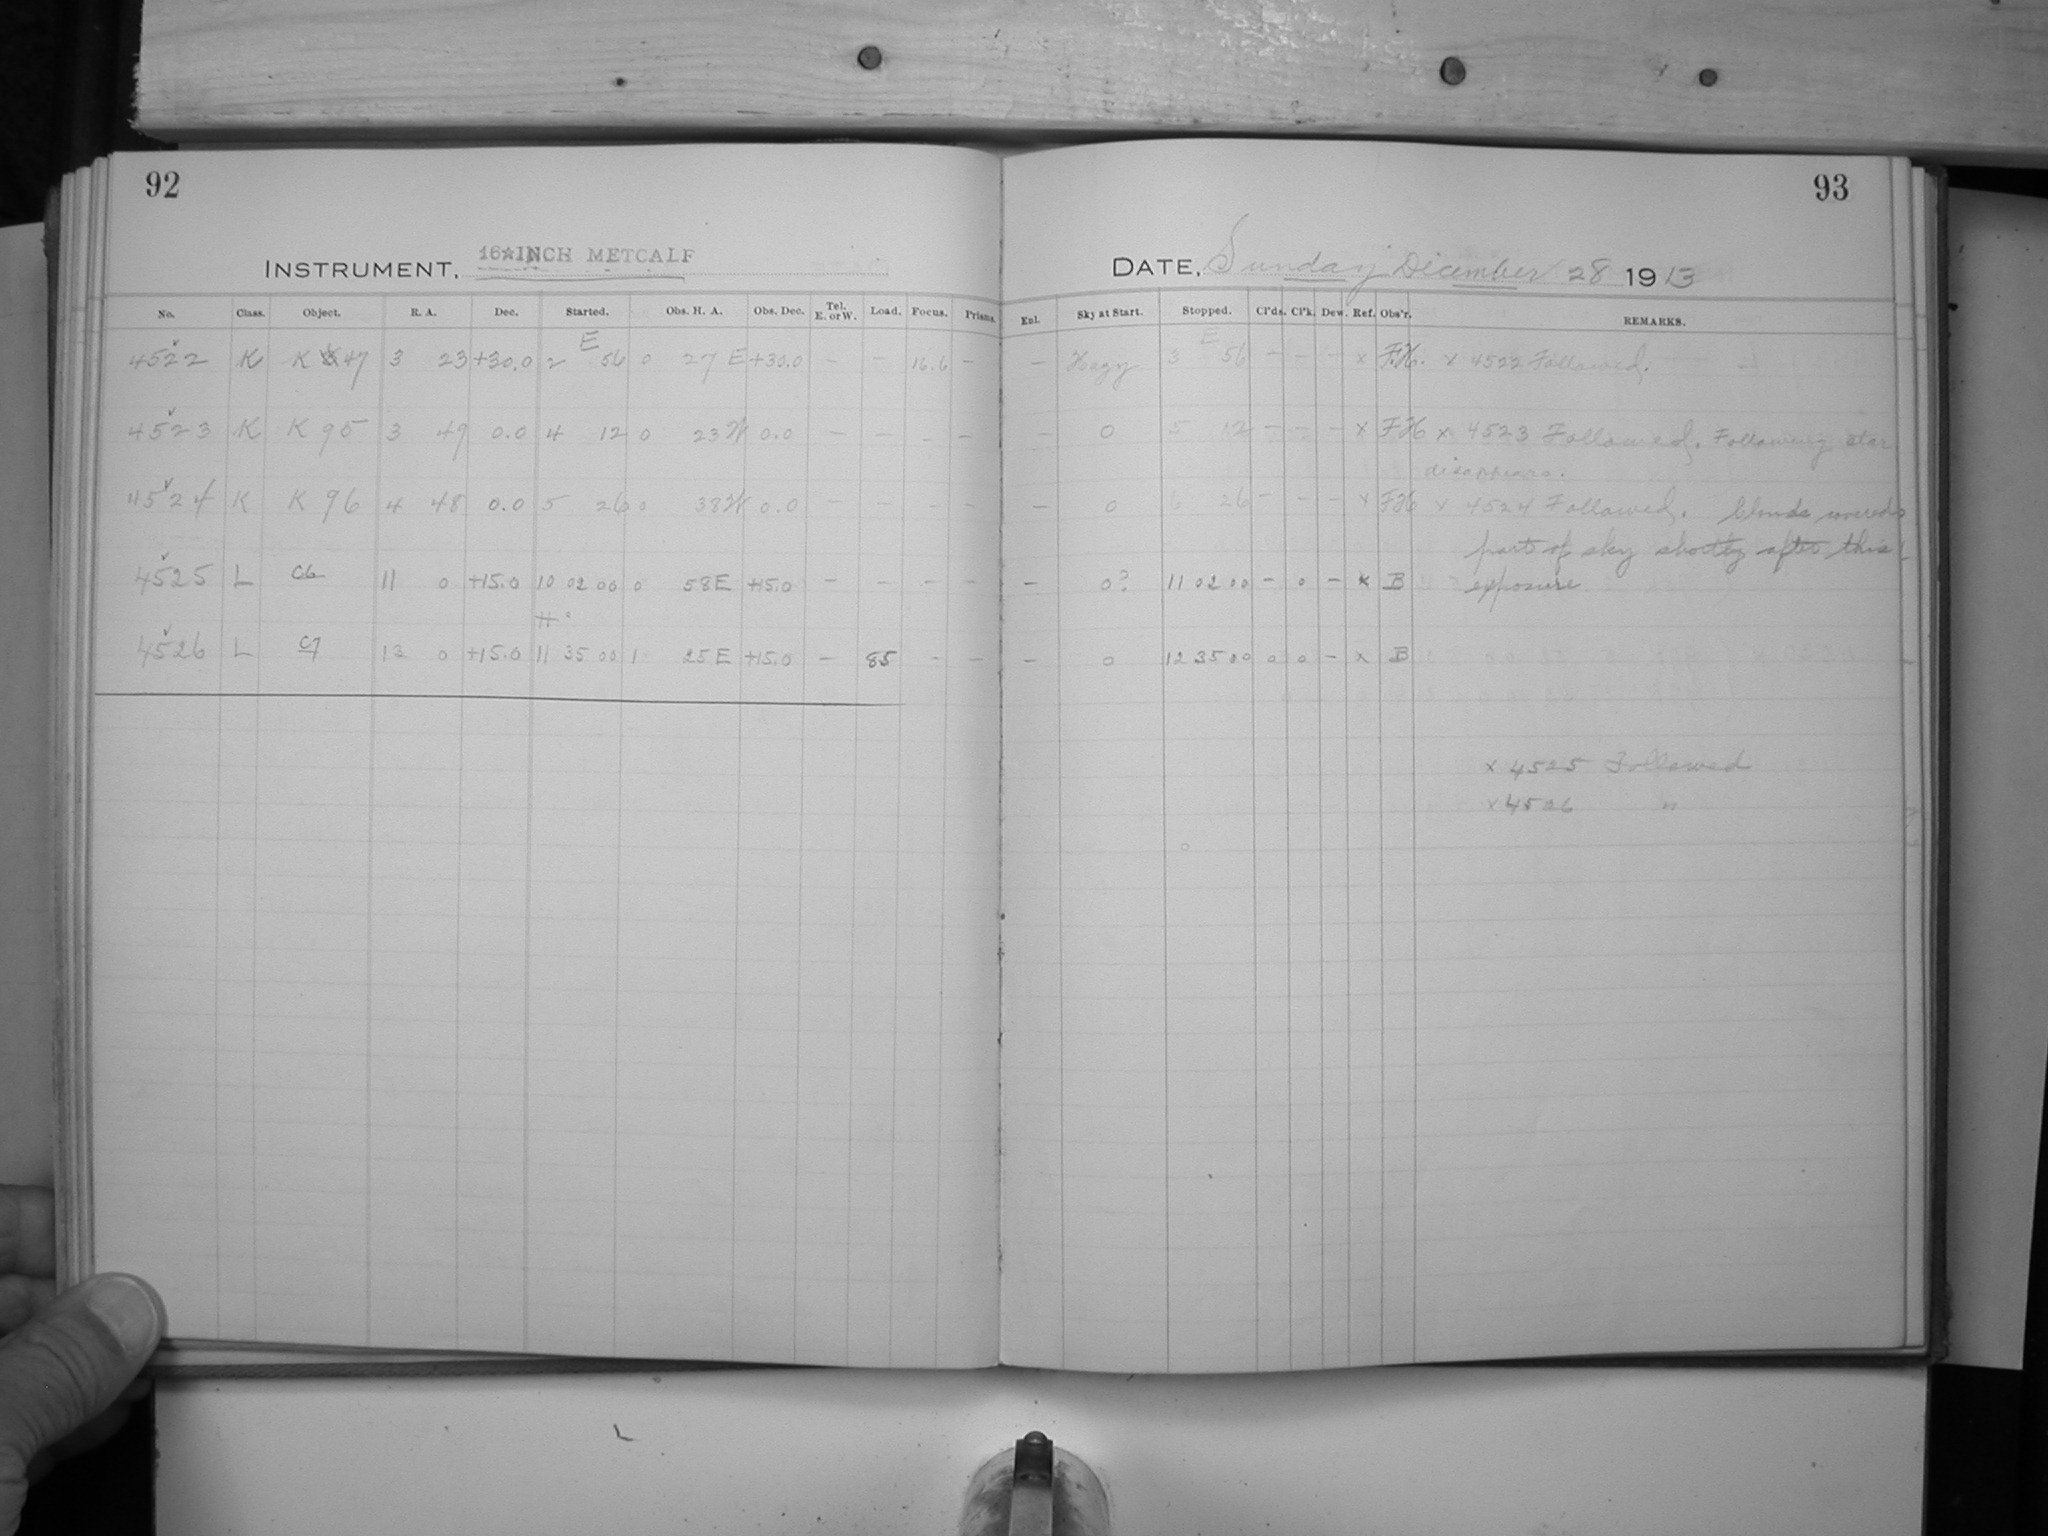 92
INSTRUMENT, 16 INCH METCALF
No. Class. Object. R. A. Dec. Started. Obs. H. A. Obs. Dec. Tel. E. or W. Load. Focus. Prisms.
E
4522 K K 47 3 23 +30.0 2 56 0 27 E +30.0 – – 16.6 –
4523 K K 95 3 49 0.0 4 12 0 23 W 0.0 – – – –
4524 K K 96 4 48 0.0 5 26 0 38 W 0.0 – – – –
4525 L C6 11 0 +15.0 10 02 00 0 58 E +15.0 – – – –
H
4526 L C7 13 0 +15.0 11 35 00 1 25 E +15.0 – 85 – –
93
DATE, Sunday December 28 1913
Enl. Sky at Start. Stopped. Cl'ds. Cl'k. Dew. Ref. Obs'r. REMARKS.
E
– Hazy 3 56 – – – x F.H. x 4522 Followed.
– 0 5 12 – – – x FH x 4523 Followed. Following star
disappears.
– 0 6 26 – – – x FH x 4524 Followed. Clouds covered
part of sky shortly after this
– 0? 11 02 00 – 0 – x B exposure
– 0 12 35 00 0 0 – x B
x 4525 Followed
x 4526 "